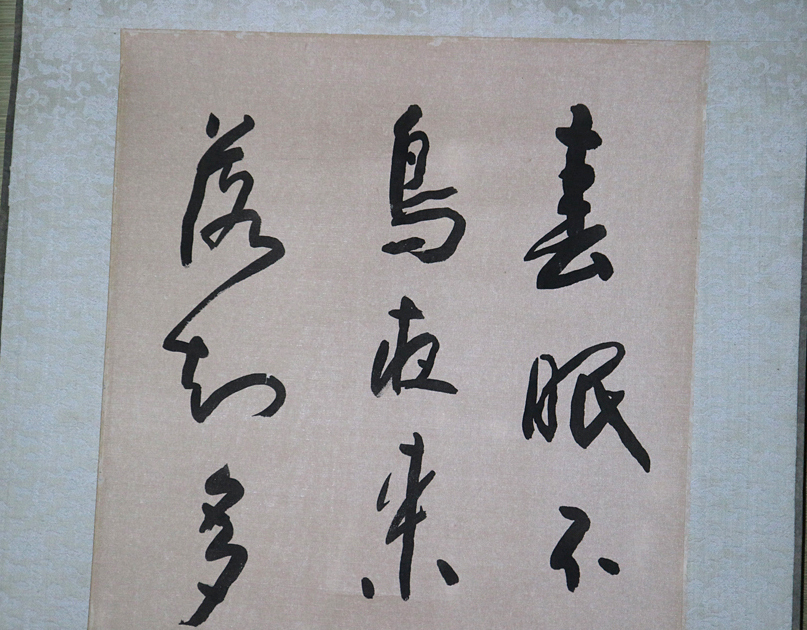 春眠不
鳥夜来
落知多